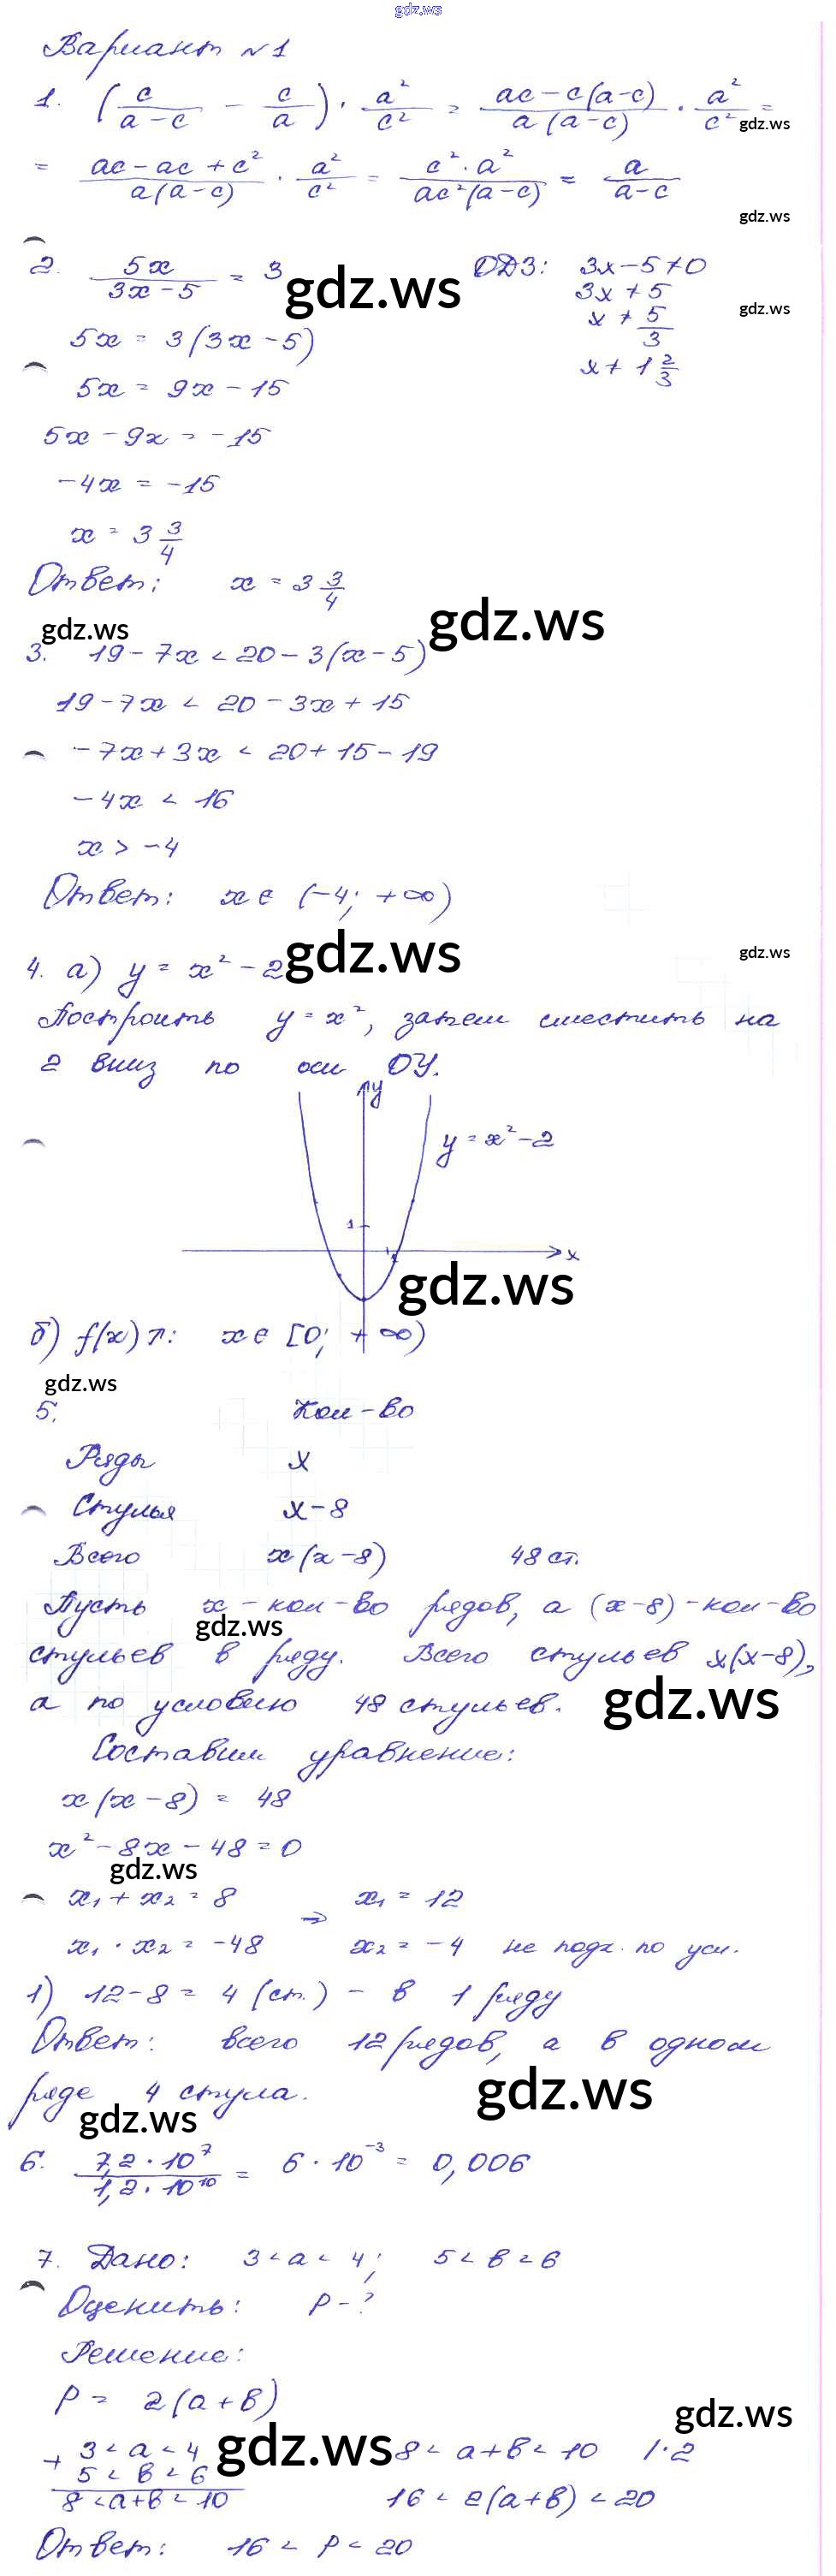 gdz.ws
Вариант №1
1. (c/(a-c) - c/a) · a²/c² = (ac-c(a-c))/(a(a-c)) · a²/c² =
gdz.ws
= (ac-ac+c²)/(a(a-c)) · a²/c² = (c²·a²)/(ac²(a-c)) = a/(a-c)
gdz.ws
2. 5x/(3x-5) = 3 ОДЗ: 3x-5≠0
gdz.ws
3x ≠ 5
gdz.ws
5x = 3(3x-5) x ≠ 5/3
5x = 9x-15 x ≠ 1 2/3
5x-9x = -15
-4x = -15
x = 3 3/4
Ответ: x = 3 3/4
gdz.ws gdz.ws
3. 19-7x < 20-3(x-5)
19-7x < 20-3x+15
-7x+3x < 20+15-19
-4x < 16
x > -4
Ответ: x∈(-4; +∞)
4. а) y = x²-2 gdz.ws gdz.ws
Построить y=x², затем сместить на
2 вниз по оси ОУ.
y
y = x²-2
1
1 x
gdz.ws
б) f(x)↗: x∈[0; +∞)
gdz.ws
5. Кол-во
Ряды x
Стулья x-8
Всего x(x-8) 48 ст.
Пусть x - кол-во рядов, а (x-8)-кол-во
gdz.ws
стульев в ряду. Всего стульев x(x-8),
а по условию 48 стульев. gdz.ws
Составим уравнение:
x(x-8) = 48
x²-8x-48=0
gdz.ws
x₁+x₂=8 ⇒ x₁=12
x₁·x₂=-48 x₂=-4 не подх. по усл.
1) 12-8=4 (ст.) - в 1 ряду
Ответ: всего 12 рядов, а в одном
ряде 4 стула. gdz.ws
gdz.ws
6. (7,2·10⁷)/(1,2·10¹⁰) = 6·10⁻³ = 0,006
7. Дано: 3<a<4; 5<в<6
Оценить: P-?
Решение:
P = 2(a+в)
gdz.ws
+ 3<a<4 gdz.ws 8<a+в<10 |·2
5<в<6
8<a+в<10 16<2(a+в)<20
Ответ: 16<P<20